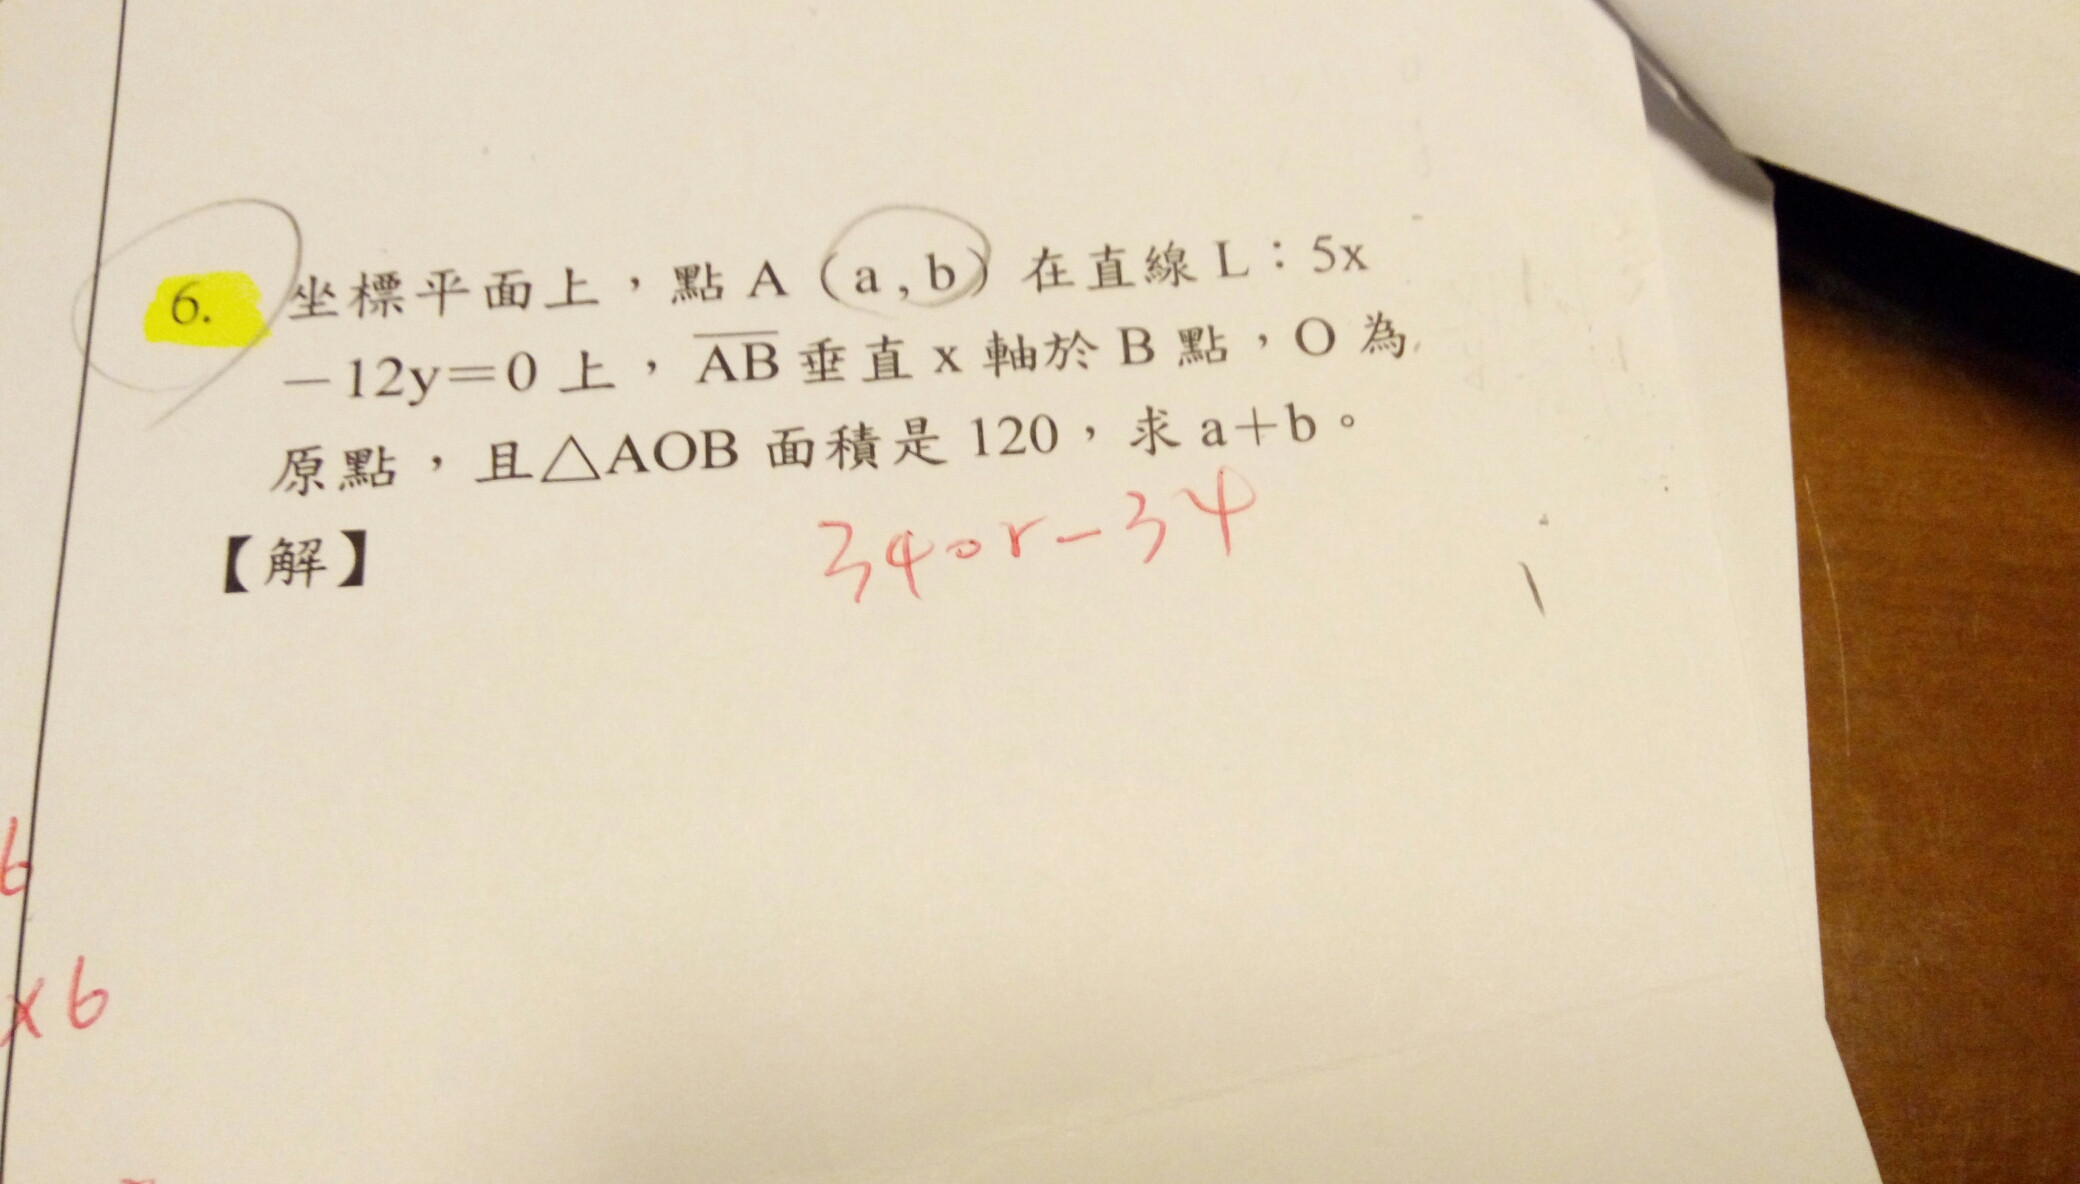 6. 坐標平面上，點 A（a , b）在直線 L：5x
－12y＝0 上，AB 垂直 x 軸於 B 點，O 為
原點，且△AOB 面積是 120，求 a＋b。
【解】
34 or －34
6
x 6